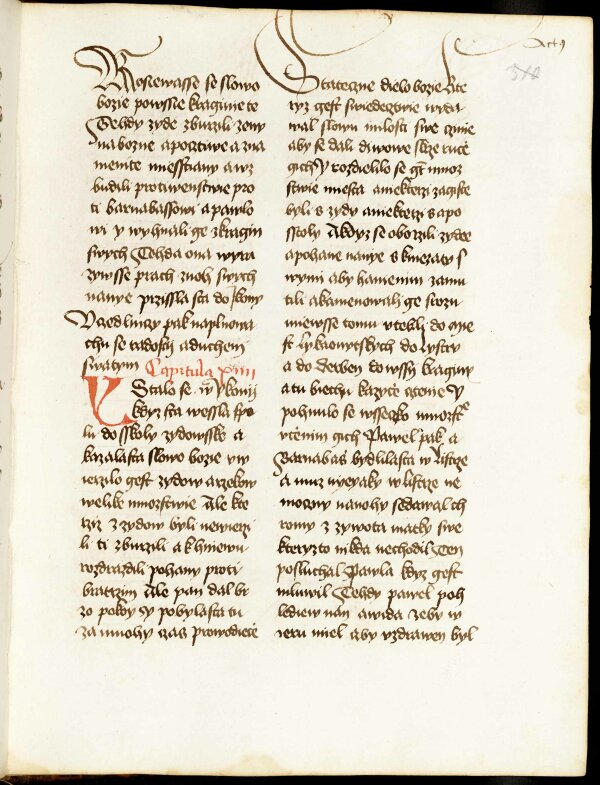 Rosiewasse se slowo
bozie powssie kraginiete
Tehdy zyde zburzili zeny
nabozne a pocztiwe a zna
menite miesstiany a wz
budili protiwenstwie pro
ti barnabassowi a pawlo
wi y wyhnali ge zkragin
swych Tehda ona wytrza
zywsse prach znoh swych
nanye przissla sta do Ikony
Uczedlnicy pak naplnowa
chu se radosti a duchem
swatym Capitula xiiii
Y Stalo se w ykonij
kdyz sta wessla spo
lu do sskoly zydowske a
kazalasta slowo bozie y w
ierzilo gest zydow a rzekow
welike mnozstwie Ale kte
rziz z zydow byli newierzi
li ti zburzili a k hniewu
rozdrazdili pohany proti
bratrzim Ale pan dal br
zo pokoy y pobylasta tu
za mnohy czas prowodiece
Statecznie dielo bozie kte
ryz gest swiedeczstwie wyda
wal slowu milosti swe czinie
aby se dali diwowe skrze rucze
gich y rozdielilo se gest mnoz
stwie miesta a niekterzi zagiste
byli s zydy a niekterzi s apo
sstoly A kdyz se oborzili zydee
a pohane nanye s kniezaty s
wymi aby hanienim zamu
tili a kamenowali ge srozu
miewsse tomu utekli do mie
st lykaonytskych do lystry
a do derben do wssy kraginy
a tu biechu kazycze cztenie y
pohnulo se wsseczko mnozstwie
uczenim gich Pawel pak a
Barnabas bydlilasta w listrze
a muz nyeyaky w listrze ne
moczny na nohy sedawal ch
romy z zywota matky swe
kteryzto nikda nechodil Ten
posluchal Pawla kdyz gest
mluwil Tehdy pawel poh
lediew nan a wida zeby w
ieru miel aby uzdrawen byl